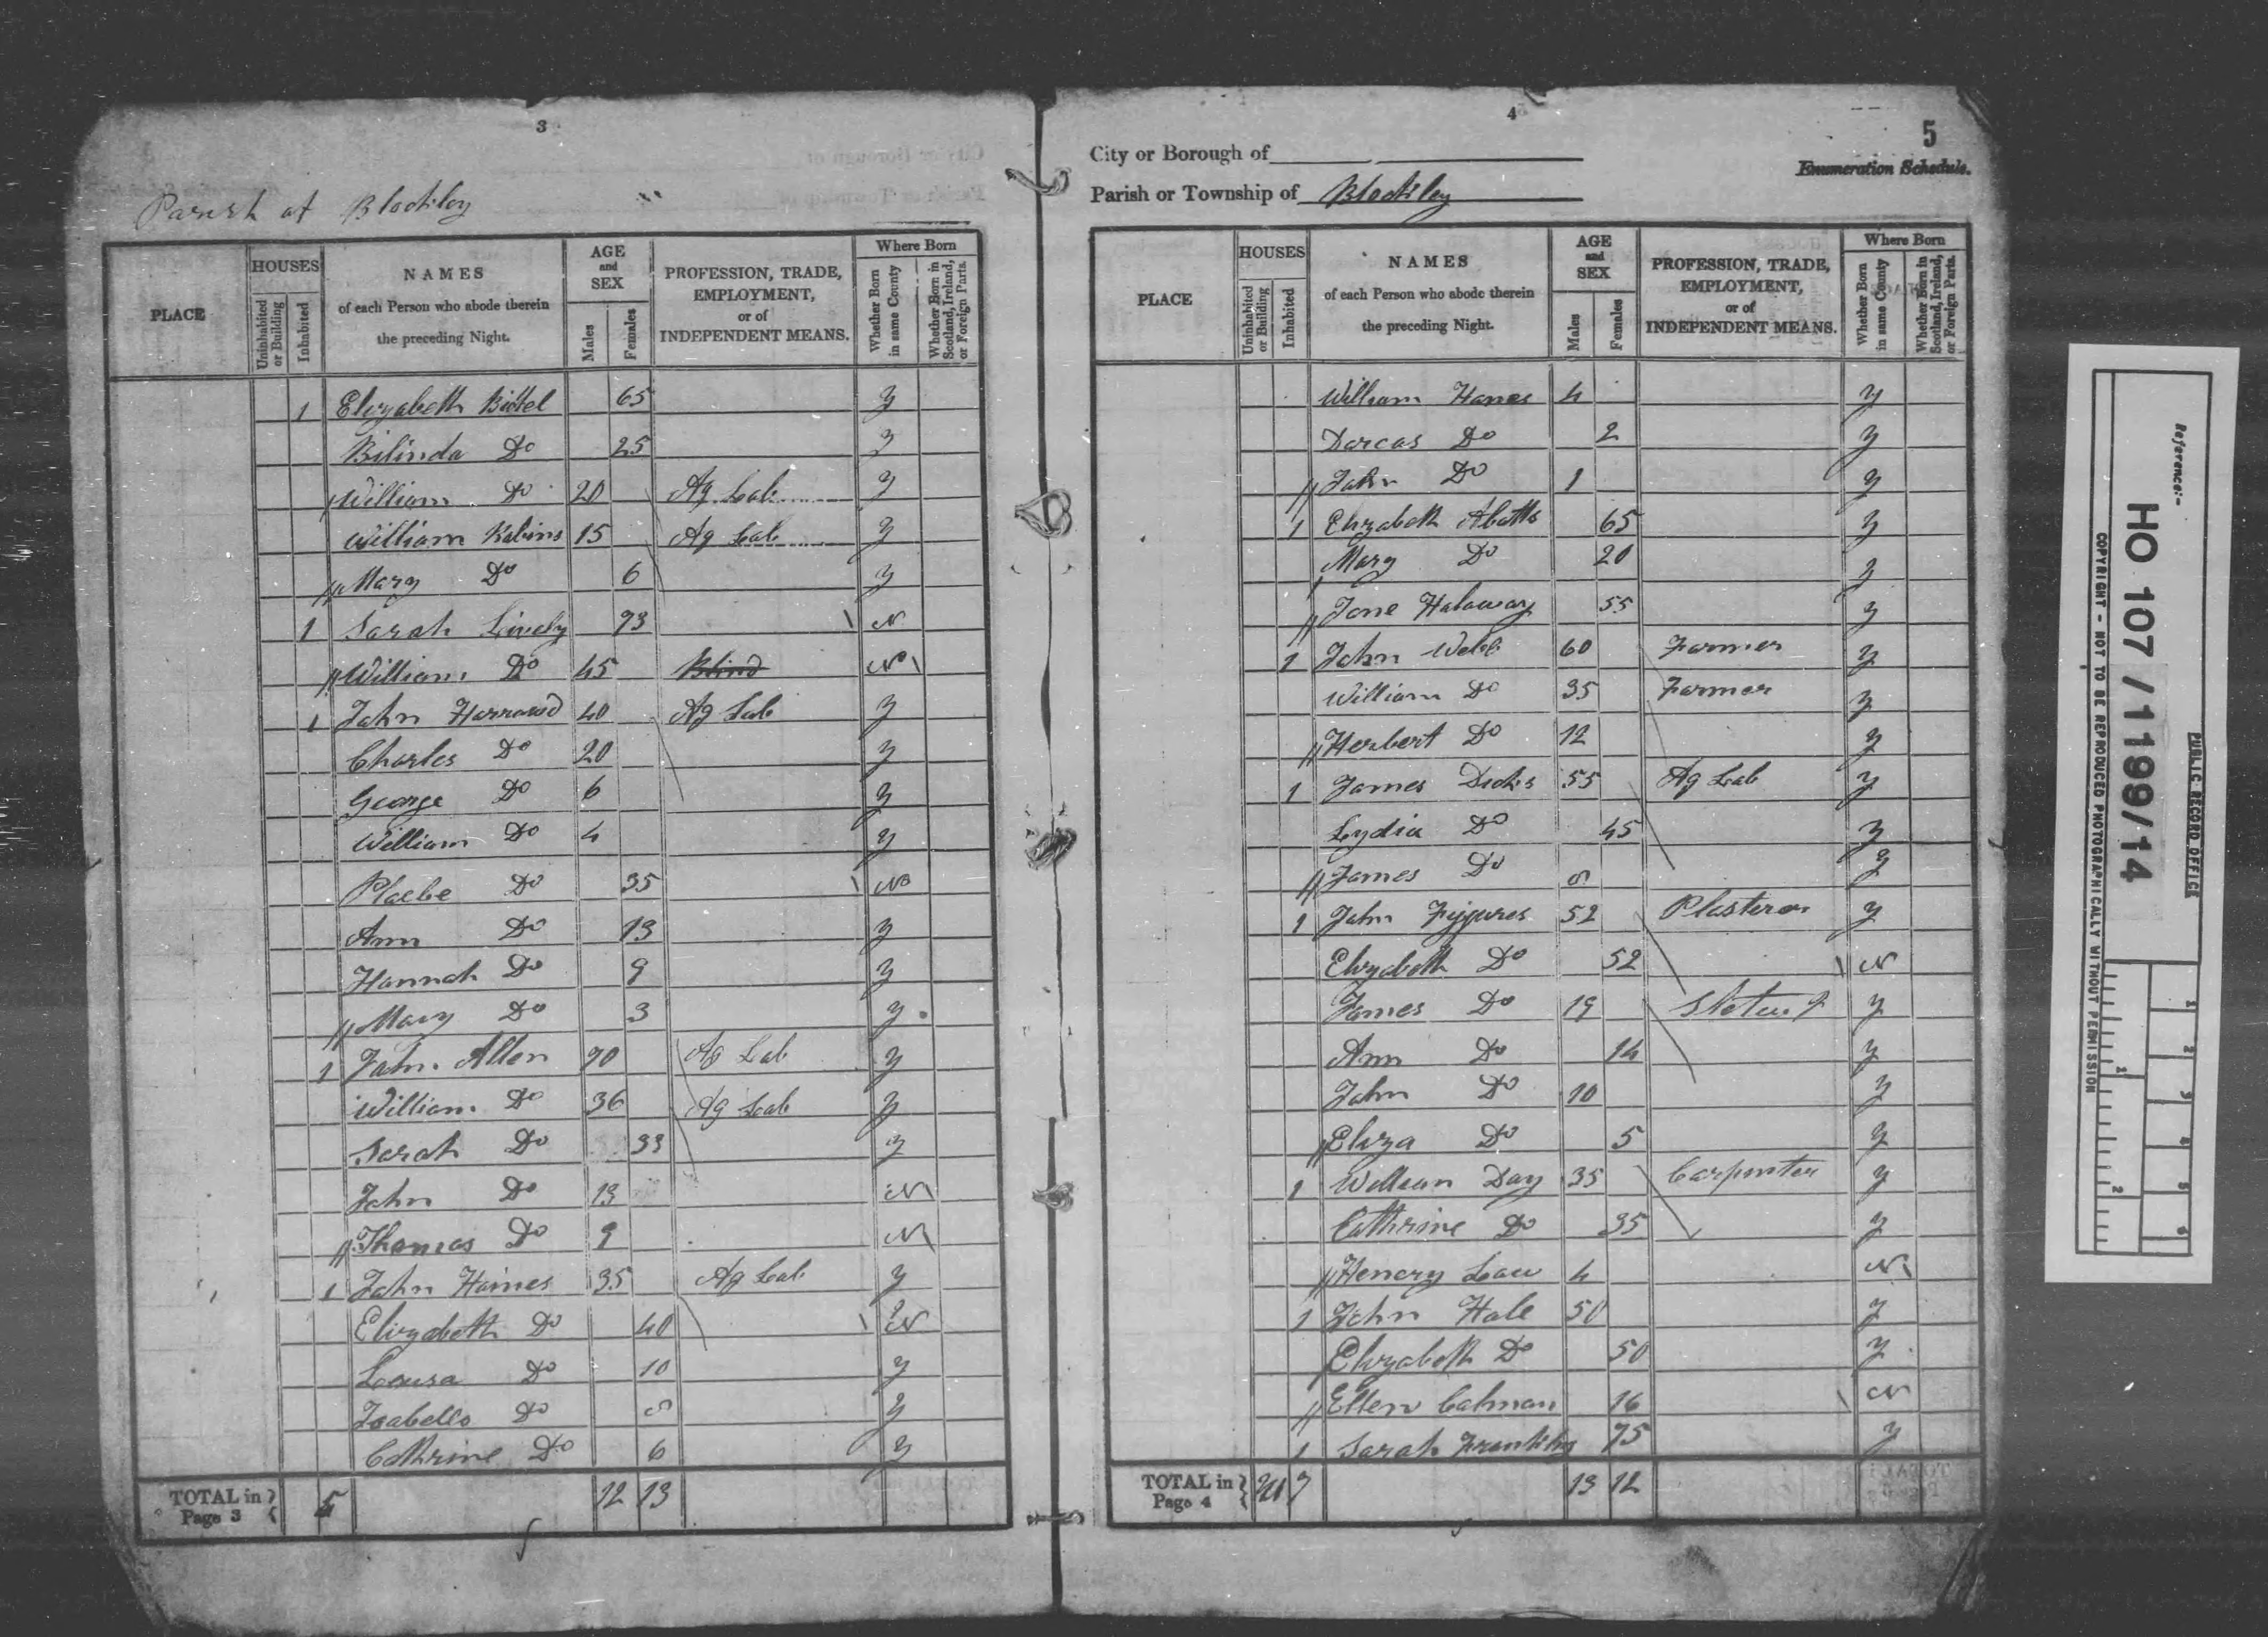 3
Parish of Blockley
PLACE
HOUSES
Uninhabited or Building
Inhabited
NAMES
of each Person who abode therein
the preceding Night.
AGE
and
SEX
Males
Females
PROFESSION, TRADE,
EMPLOYMENT,
or of
INDEPENDENT MEANS.
Where Born
Whether Born in same County
Whether Born in Scotland, Ireland, or Foreign Parts.
1 Elizabeth 65 y
Bilinda Do 25 y
William Do 20 Ag Lab y
William 15 Ag Lab y
Mary Do 6 y
1 Sarah Lively 73 N
William Do 45 Blind N
1 John 40 Ag Lab y
Charles Do 20 y
George Do 6 y
William Do 4 y
Phaebe Do 35 No
Ann Do 13 y
Hannah Do 9 y
Mary Do 3 y
1 John Allen 70 Ag Lab y
William Do 36 Ag Lab y
Sarah Do 33 y
John Do 13 N
Thomas Do 9 N
1 John Haines 35 Ag Lab y
Elizabeth Do 40 N
Lousa Do 10 y
Isabella Do 8 y
Cathrine Do 6 y
TOTAL in Page 3 5 12 13
4
5
City or Borough of
Enumeration Schedule.
Parish or Township of Blockley
PLACE
HOUSES
Uninhabited or Building
Inhabited
NAMES
of each Person who abode therein
the preceding Night.
AGE
and
SEX
Males
Females
PROFESSION, TRADE,
EMPLOYMENT,
or of
INDEPENDENT MEANS.
Where Born
Whether Born in same County
Whether Born in Scotland, Ireland, or Foreign Parts.
William Hanes 4 y
Darcas Do 2 y
John Do 1 y
1 Elizabeth Abotts 65 y
Mary Do 20 y
Jane Haloway 55 y
1 John Webb 60 Farmer y
William Do 35 Farmer y
Herbert Do 12 y
1 James Dicks 55 Ag Lab y
Lydia Do 45 y
James Do 8 y
1 John Figgures 52 Plasterer y
Elizabeth Do 52 N
James Do 19 y
Ann Do 14 y
John Do 10 y
Eliza Do 5 y
1 William Day 35 Carpenter y
Cathrine Do 35 y
Henery Law 4 N
1 John Hale 50 y
Elizabeth Do 50 y
Ellen Calman 16 N
1 Sarah 75 y
TOTAL in Page 4 7 13 12
Reference:-
HO 107/1199/14
PUBLIC RECORD OFFICE
COPYRIGHT - NOT TO BE REPRODUCED PHOTOGRAPHICALLY WITHOUT PERMISSION
1
2
1
2
3
4
5
6